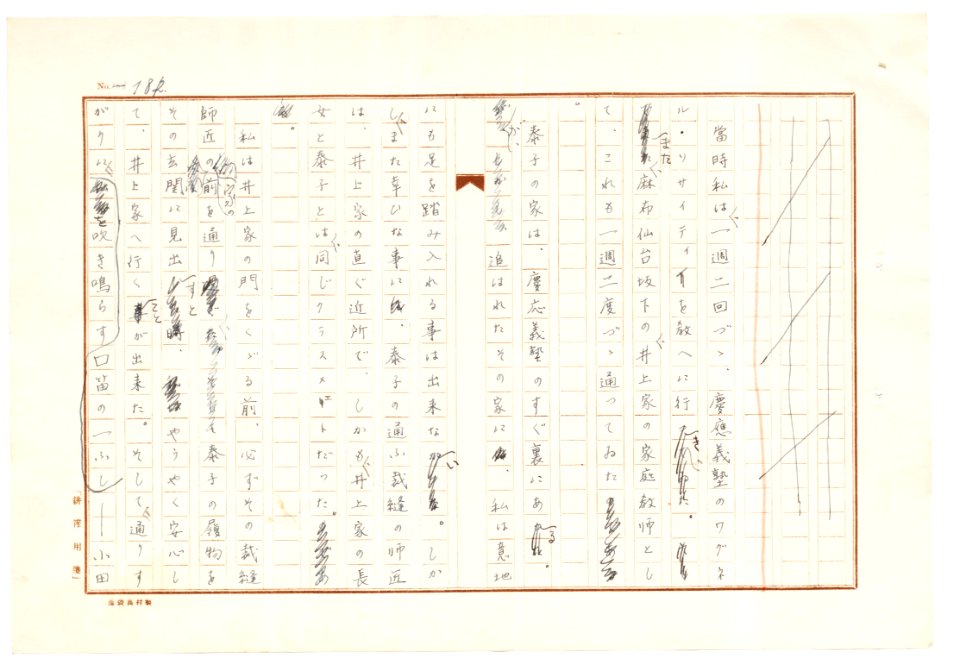 No. 182
當時私は一週二回づゝ、慶應義塾のワグネ
ル・ソサイティーを教へに行き、
また麻布仙台坂下の井上家の家庭教師とし
て、これも一週二度づゝ通つてゐた
。
泰子の家は、慶応義塾のすぐ裏にある。
が、追はれたその家に、私は意地
にも足を踏み入れる事は出来ない。しか
しまた幸ひな事に、泰子の通ふ裁縫の師匠
は、井上家の直ぐ近所で、しかも井上家の長
女と泰子とは同じクラスメートだつた
。
私は井上家の門をくゞる前、必ずその裁縫
師匠の家の前を通り 泰子の履物を
その玄関に見出すと、やうやく安心し
て、井上家へ行くことが出来た。そして通りす
がりに、吹き鳴らす口笛の一ふし――小田